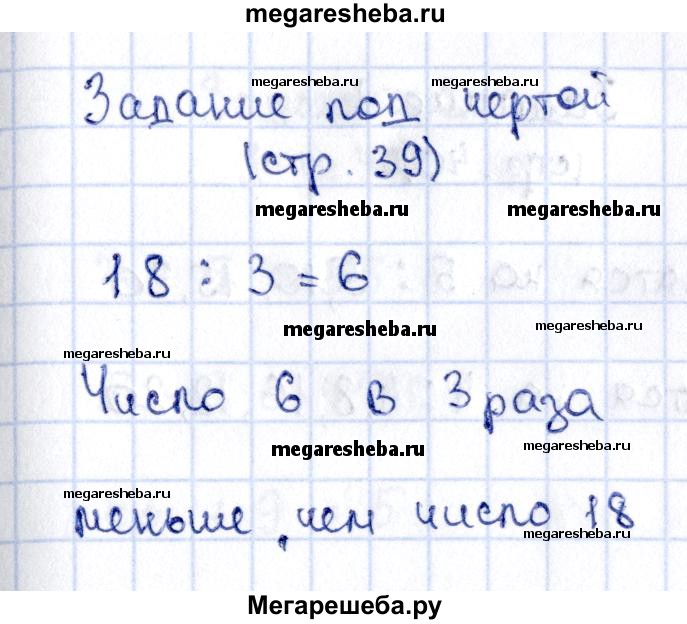 megaresheba.ru
megaresheba.ru megaresheba.ru
Задание под чертой
(стр. 39)
megaresheba.ru megaresheba.ru
18 : 3 = 6
megaresheba.ru megaresheba.ru
megaresheba.ru
Число 6 в 3 раза
megaresheba.ru megaresheba.ru
megaresheba.ru
меньше, чем число 18
megaresheba.ru
Мегарешеба.ру